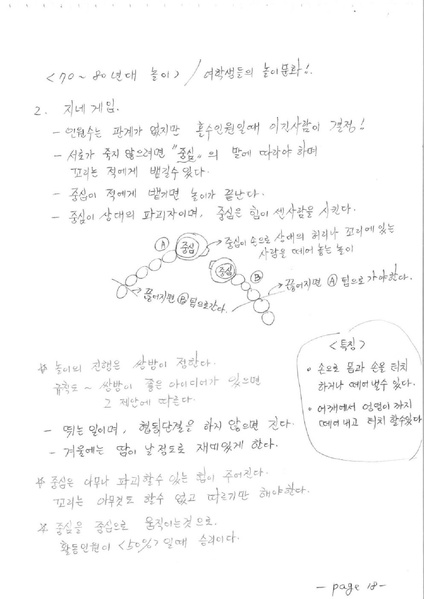 <70~80년대 놀이> / 여학생들의 놀이문화!.
2. 지네게임.
- 인원수는 관계가 없지만 홀수인원일때 이긴사람이 결정!
- 서로가 죽지 않으려면 "중심"의 말에 따라야 하며
꼬리는 적에게 뺏길수 있다.
- 중심이 적에게 뺏기면 놀이가 끝난다.
- 중심이 상대의 파괴자이며, 중심은 힘이 센사람을 시킨다.
Ⓐ 중심
중심이 손으로 상대의 허리나 꼬리에 있는
사람을 떼어 놓는 놀이
중심 Ⓑ
끊어지면 Ⓑ팀으로간다.
끊어지면 Ⓐ팀으로 가야한다.
<특징>
• 손으로 몸과 손을 터치
하거나 떼어 낼수 있다.
• 어깨에서 엉덩이 까지
떼어 내고 터치 할수있다
* 놀이의 진행은 쌍방이 정한다.
규칙도 ~ 쌍방이 좋은 아이디어가 있으면
그 제안에 따른다.
- 뛰는일이며, 행동단결을 하지 않으면 진다.
- 겨울에는 땀이 날 정도로 재미있게 한다.
* 중심은 아무나 파괴할수 있는 힘이 주어진다.
꼬리는 아무것도 할수 없고 따르기만 해야한다.
* 중심을 중심으로 움직이는것으로.
활동인원이 <50%> 일때 승리이다.
- page 18 -